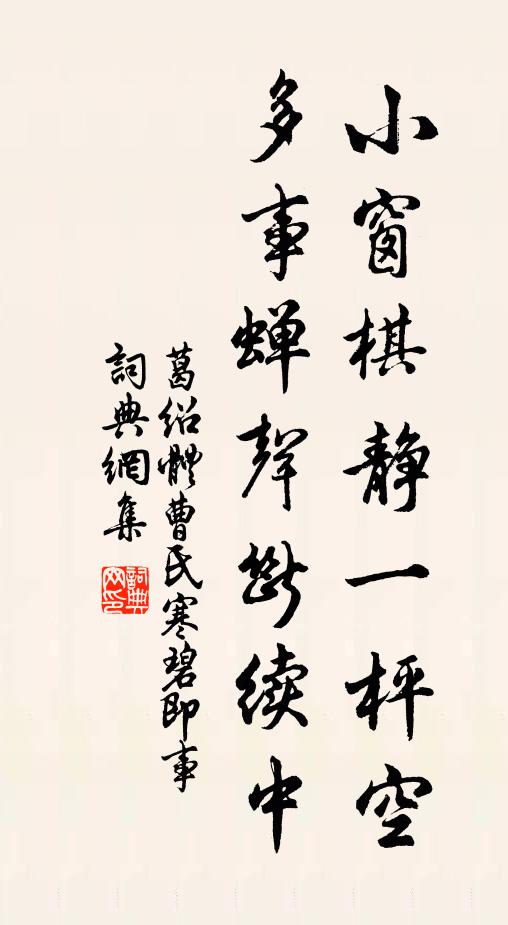 小窗棋静一枰空
多事蝉聲斷续中
葛绍體曹氏寒碧即事
詞典網集
詞典網印